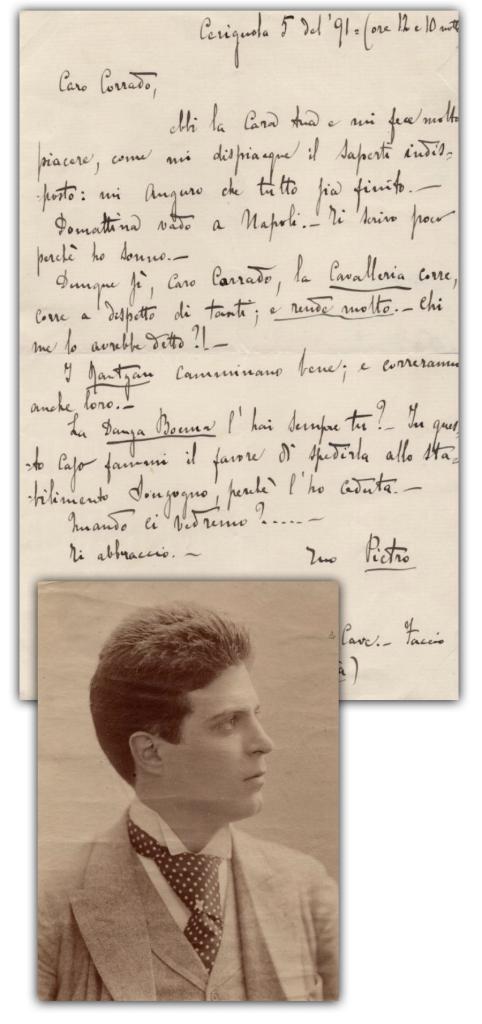 Cerignola 5 del '91 = (ore 12 e 10 notte
Caro Corrado,
ebbi la Cara tua e mi fece molto
piacere, come mi dispiacque il saperti indis=
=posto: mi auguro che tutto sia finito. —
Domattina vado a Napoli. — Ti scrivo poco
perchè ho sonno. —
Dunque sì, Caro Corrado, la Cavalleria corre,
corre a dispetto di tanti; e rende molto. — Chi
me lo avrebbe detto?! —
I Rantzau camminano bene; e correranno
anche loro. —
La Danza Boema l'hai sempre tu? — In ques=
=to Caso fammi il favore di spedirla allo sta=
=bilimento Sonzogno, perchè l'ho ceduta. —
Quando ci vedremo?..... —
Ti abbraccio. — Tuo Pietro
Cave. — Faccio